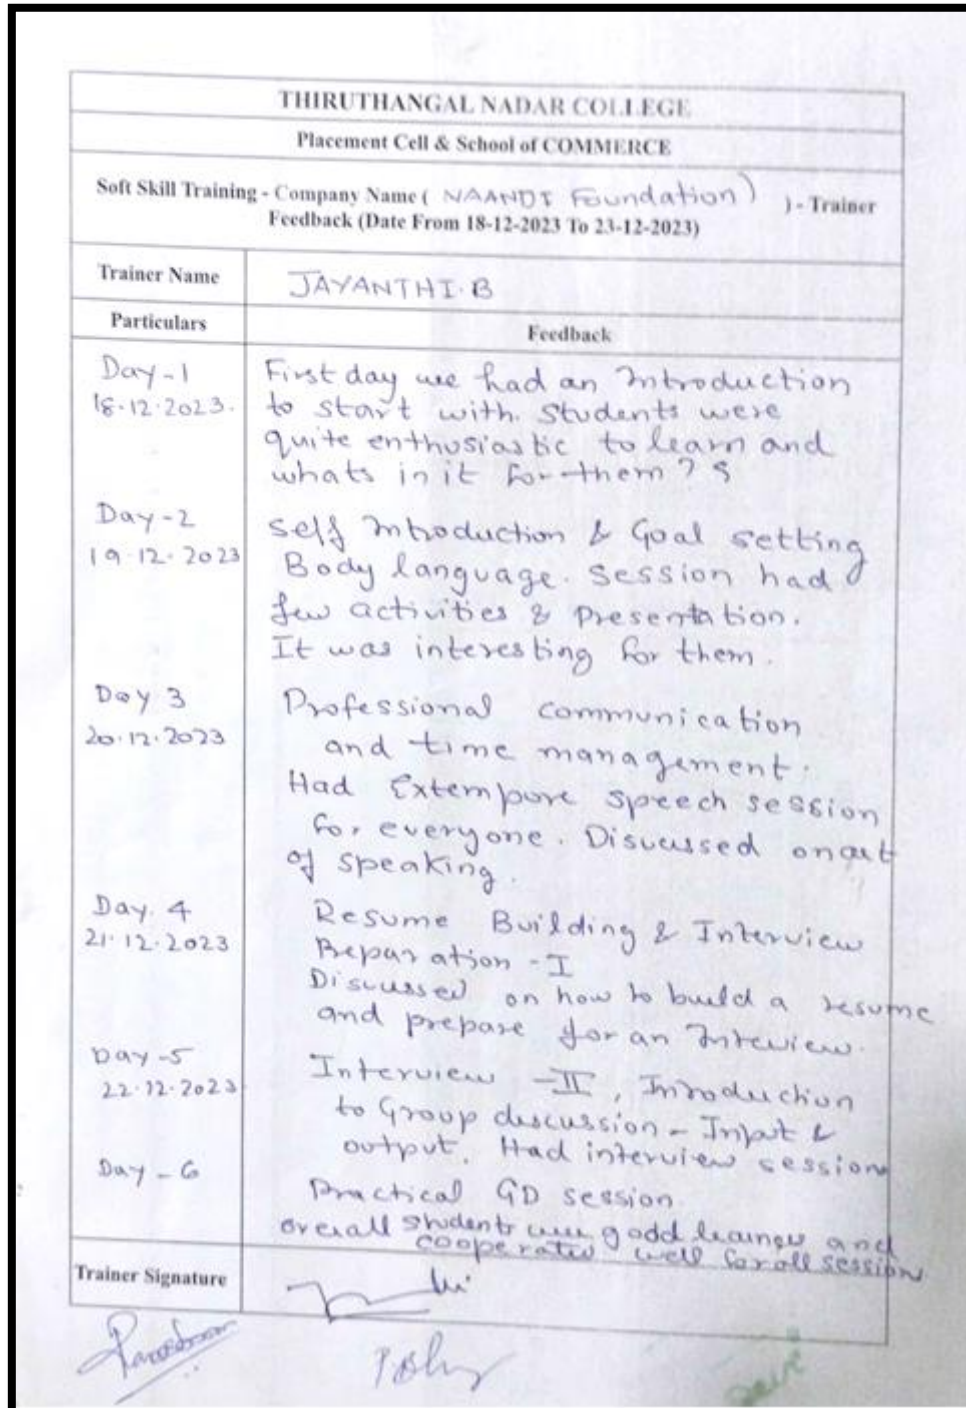 THIRUTHANGAL NADAR COLLEGE
Placement Cell & School of COMMERCE
Soft Skill Training - Company Name ( NAANDI Foundation) ) - Trainer
Feedback (Date From 18-12-2023 To 23-12-2023)
Trainer Name JAYANTHI.B
Particulars Feedback
Day-1 First day we had an Introduction
18.12.2023. to start with. Students were
quite enthusiastic to learn and
whats in it for them ?
Day-2 Self Introduction & Goal setting
19.12.2023 Body language. Session had
few activities & Presentation.
It was interesting for them.
Day 3 Professional communication
20.12.2023 and time management.
Had Extempore speech session
for everyone. Discussed on art
of speaking.
Day. 4 Resume Building & Interview
21.12.2023 Preparation - I
Discussed on how to build a resume
and prepare for an Interview.
Day-5 Interview - II, Introduction
22.12.2023 to Group discussion - Input &
output. Had interview session
Day - 6 Practical GD session
Overall students were godd learners and
cooperated well for all session
Trainer Signature